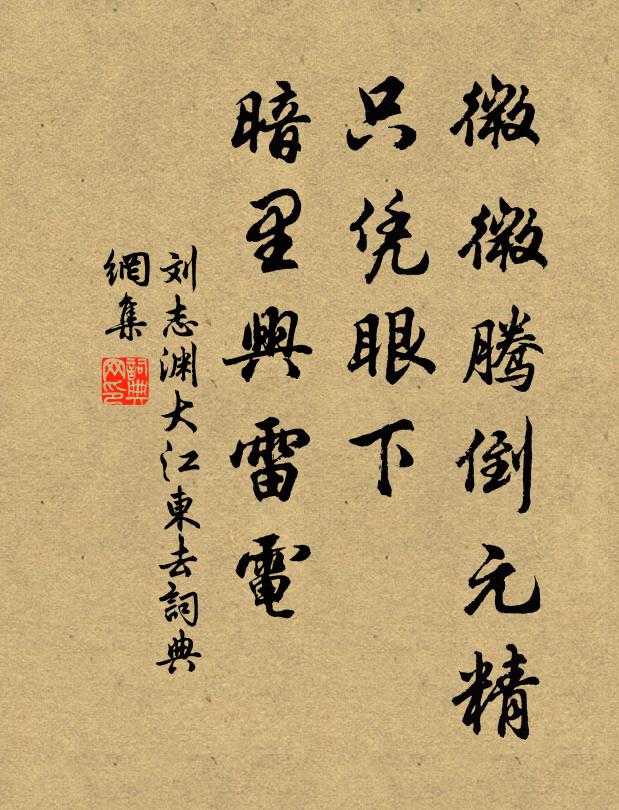 微微腾倒元精
只凭眼下
暗里興雷電
刘志渊大江東去詞典
網集
詞典
网印